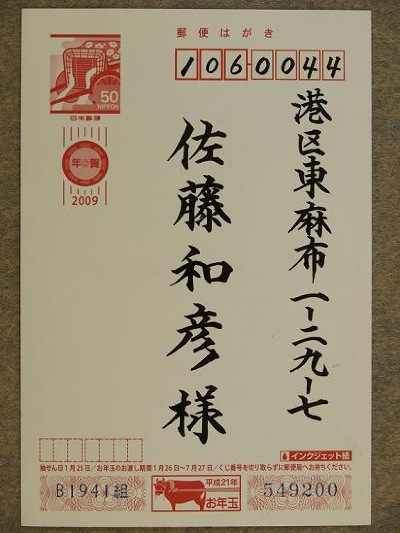 郵便はがき
1060044
港区東麻布一-二九-七
佐藤和彦様
50
NIPPON
日本郵便
年賀
2009
インクジェット紙
抽せん日1月25日/お年玉のお渡し期間1月26日〜7月27日/くじ番号を切り取らずに郵便局へお持ちください。
B1941組
平成21年
お年玉
549200